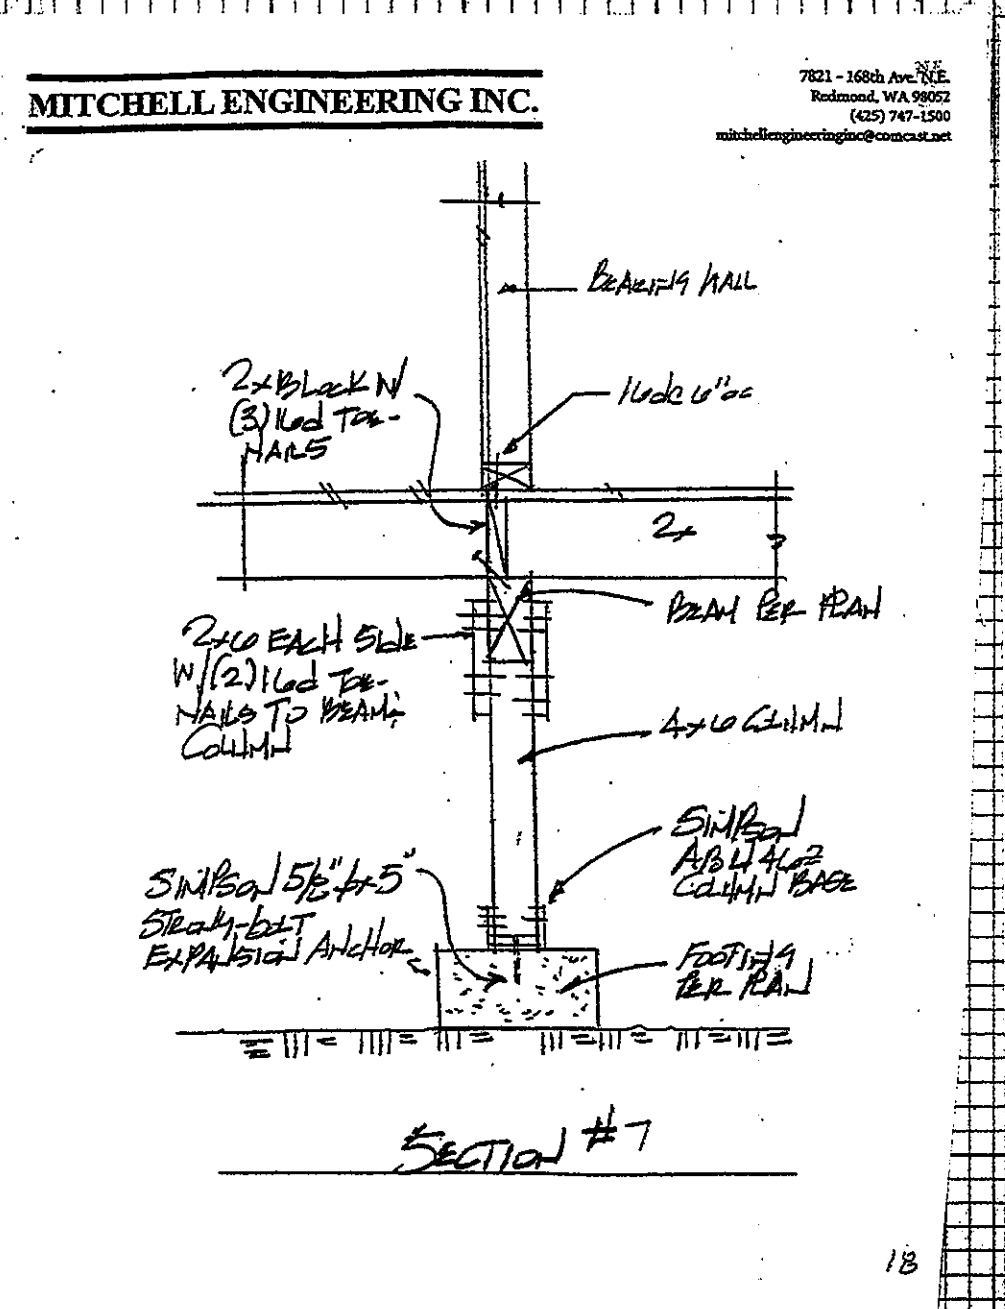 MITCHELL ENGINEERING INC.
7821 - 168th Ave. N.E.
Redmond, WA 98052
(425) 747-1500
mitchellengineeringinc@comcast.net
BEARING WALL
2x BLOCK W/
(3) 16d TOE-
NAILS
16d@6"oc
2x
BEAM PER PLAN
2x6 EACH SIDE
W/(2) 16d TOE-
NAILS TO BEAM &
COLUMN
4x6 COLUMN
SIMPSON
ABU46
COLUMN BASE
SIMPSON 5/8"φx5"
STRONG-BOLT
EXPANSION ANCHOR
FOOTING
PER PLAN
SECTION #7
18